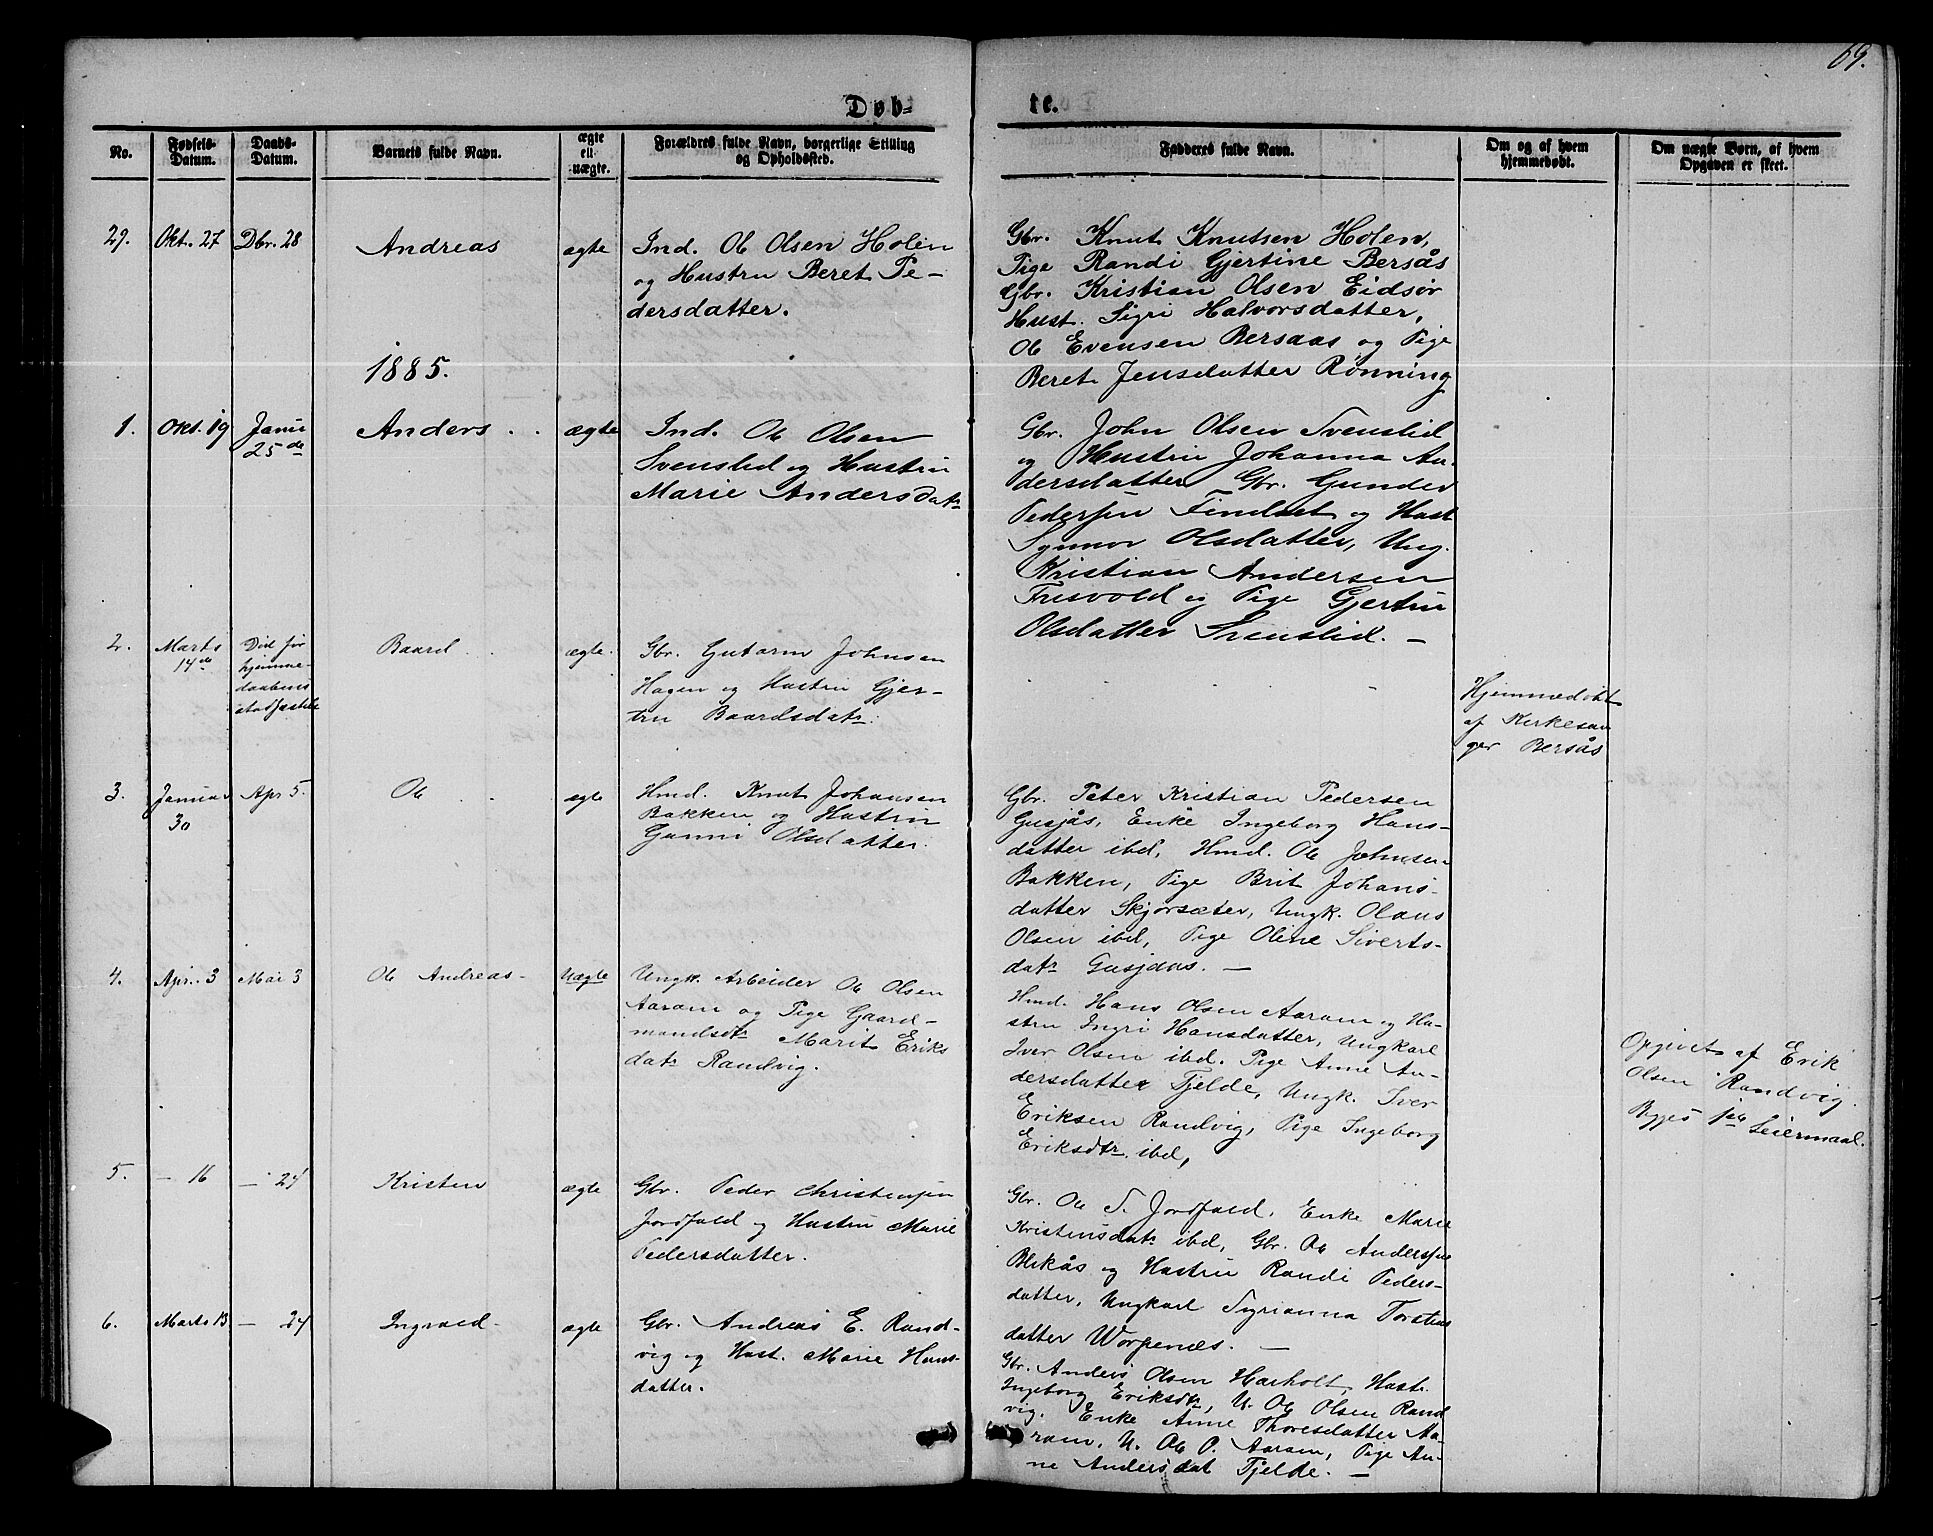 69.
Døb-
te.
No.
Fødsels-
Datum.
Daabs-
Datum.
Barnets fulde Navn.
ægte
ell.
uægte.
Forældres fulde Navn, borgerlige Stilling
og Opholdssted.
Fadderes fulde Navn.
Om og af hvem
hjemmedøbt.
Om uægte Børn, af hvem
Opgaven er skeet.
29.
Okt. 27
Dbr. 28
Andreas
ægte
Ind. Ole Olsen Holen
og Hustru Beret Pe-
dersdatter.
Gbr. Knut Knutsen Holen,
Pige Randi Gjertine Bersås
Gbr. Kristian Olsen Eidsør
Hust. Sigri Halvorsdatter,
Ole Evensen Bersaas og Pige
Beret Jensdatter Rønning
1885.
1.
Okt. 19
Janu
25de
Anders
ægte
Ind. Ole Olsen
Svenslid og Hustru
Marie Andersdatr
Gbr. John Olsen Svenslid
og Hustru Johanna An-
dersdatter Gbr. Gunder
Pedersen Findset og Hust
Synnøv Olsdatter, Ung.
Kristian Andersen
Frisvold og Pige Gjertru
Olsdatter Svenslid. —
2.
Marts
14de
hjemme-
daabens
stadfæstelse
Baard
ægte.
Gbr. Gutorm Johnsen
Hagen og Hustru Gjer-
tru Baardsdatr.
Hjemmedøbt
af Kirkesan
ger Bersås
3.
Januar
30
Apr 5.
Ole
ægte
Hmd. Knut Johansen
Bakken og Hustru
Gunni Olsdatter.
Gbr. Peter Kristian Pedersen
Gusjås, Enke Ingeborg Hans-
datter ibd, Hmd. Ole Johnsen
Bakken, Pige Brit Johans-
datter Skjørsæter, Ungk. Olaus
Olsen ibd, Pige Oline Siverts-
datr Gusjaas. —
4.
Apr. 3
Mai 3
Ole Andreas
Uægte
Ungk. Arbeider Ole Olsen
Aaram og Pige Gaard-
mandsdtr Marit Eriks
datr Randvig.
Hmd. Hans Olsen Aaram og Hu-
stru Ingri Hansdatter, Ungkarl
Iver Olsen ibd. Pige Anne An-
dersdatter Tjelde, Ungk. Iver
Eriksen Randvig, Pige Ingeborg
Eriksdtr. ibd,
Opgivet af Erik
Olsen Randvig.
Begges 1ste Leiermaal.
5.
— 16
— 24
Kristen
ægte
Gbr. Peder Christensen
Jordfald og Hustru Marie
Pedersdatter.
Gbr. Ole S. Jordfald, Enke Marie
Kristensdatr ibd, Gbr. Ole Andersen
Blikås og Hustru Randi Peders-
datter, Ungkarl Syrianna Torstens
datter Worpenæs. —
6.
Marts 13
— 24
Ingvald
ægte
Gbr. Andreas E. Rand-
vig og Hust. Marie Hans-
datter.
Gbr. Anders Olsen Harholt, Hust.
Ingeborg Eriksdtr, U. Ole Olsen Rand
vig. Enke Anne Thoresdatter Aa-
ram, U. Ole O. Aaram, Pige An-
ne Andersdat Tjelde. —